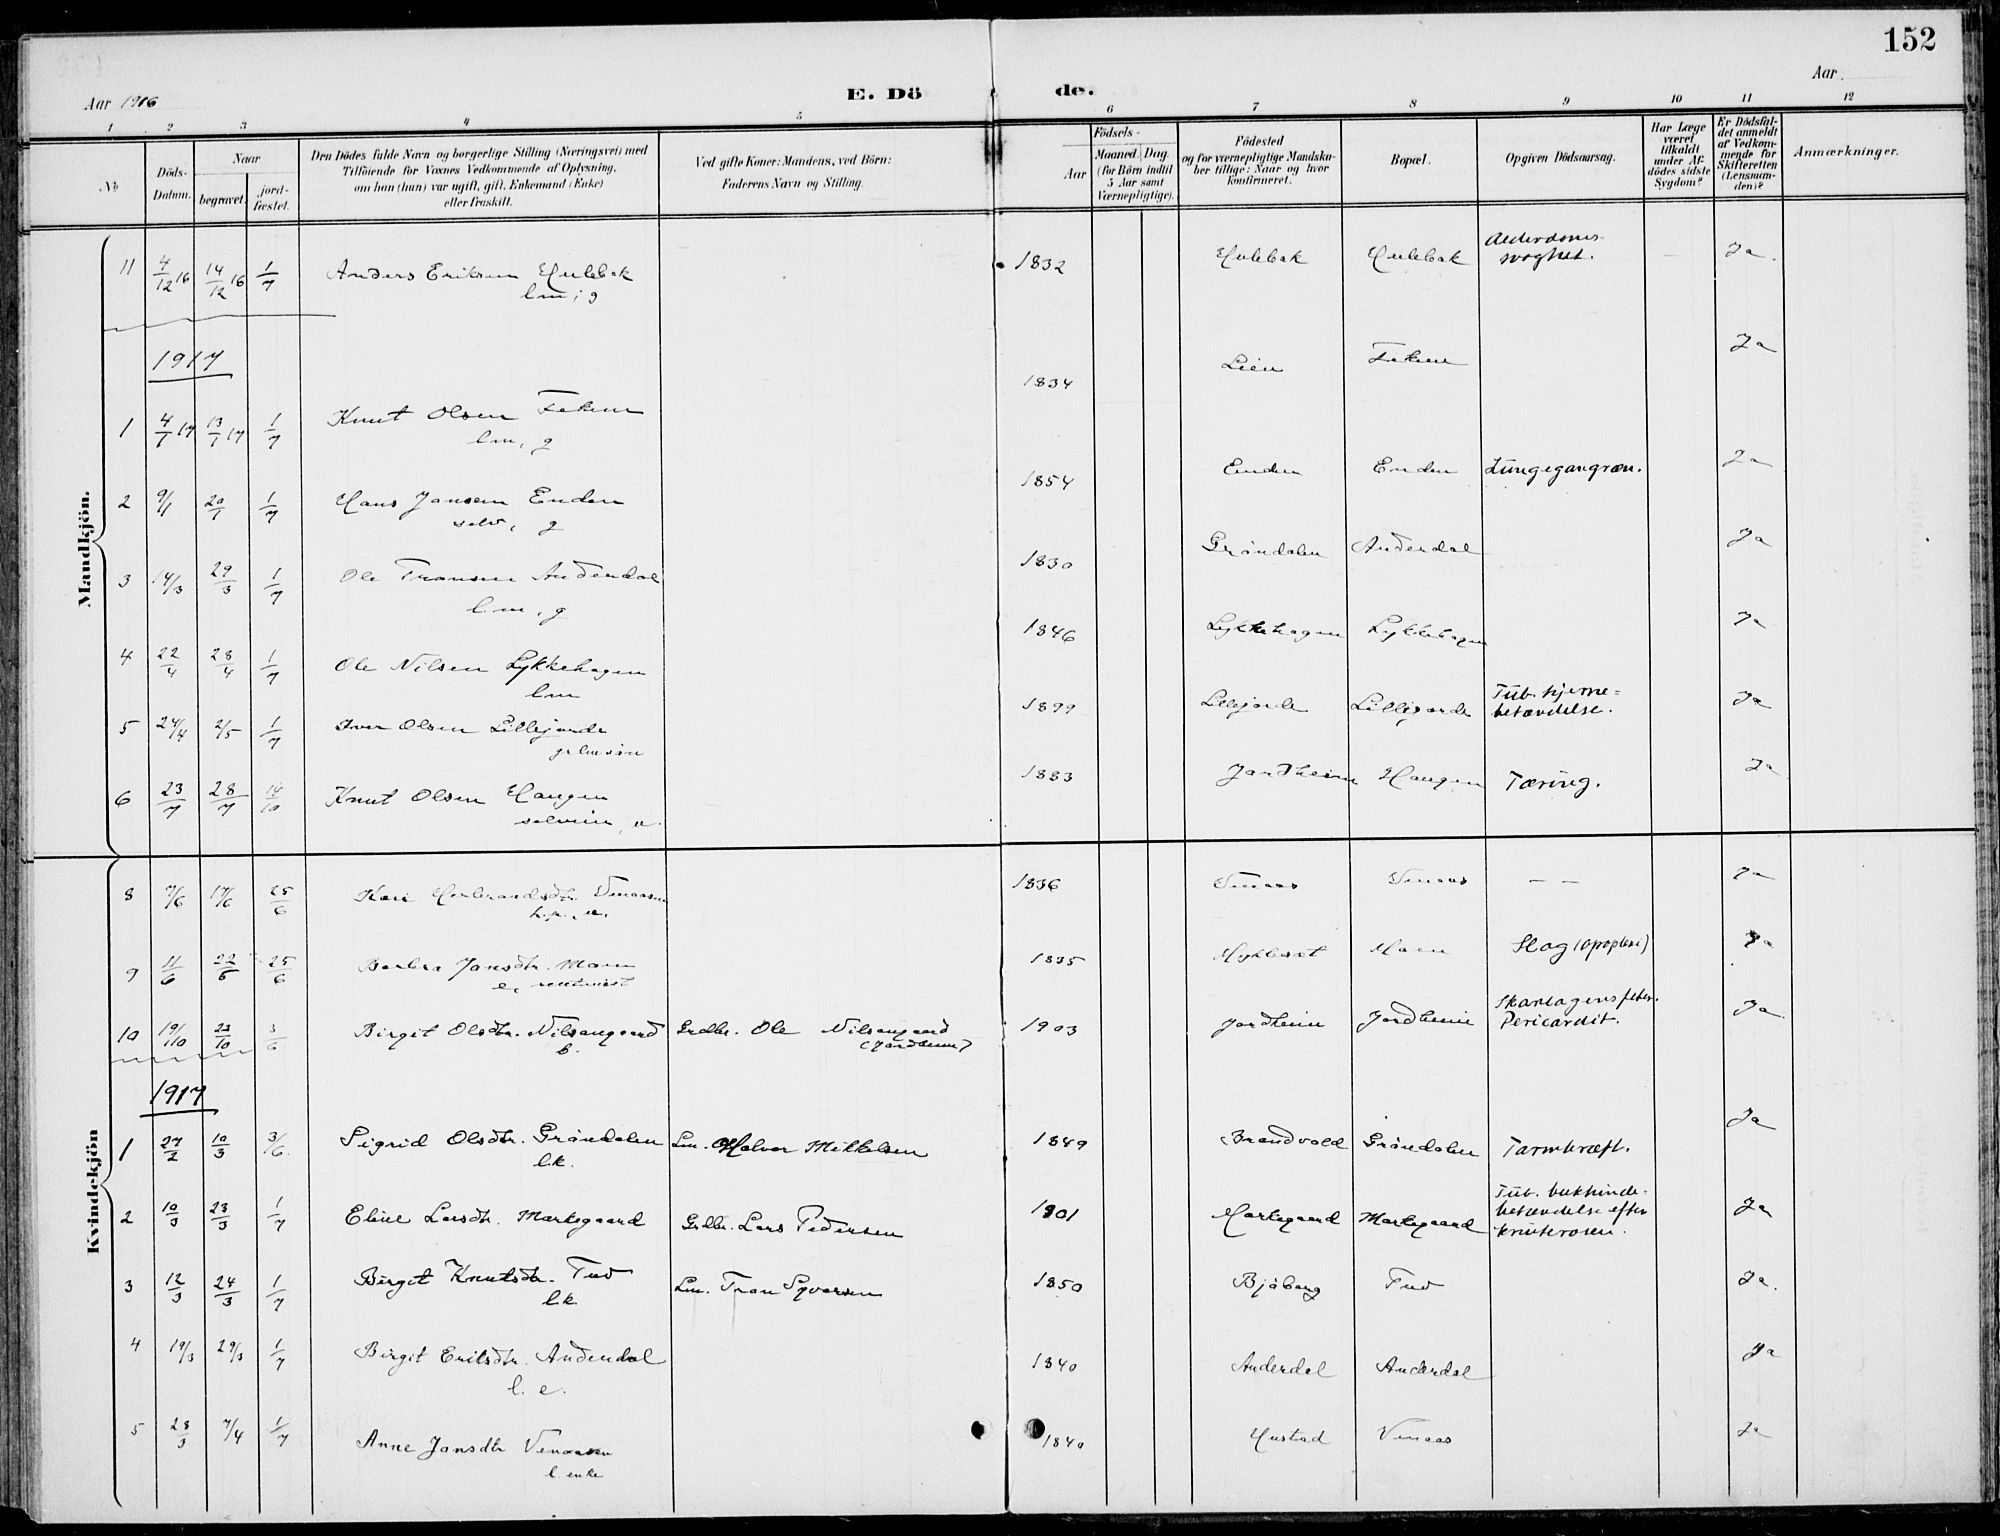 152
Aar 1916
E. Dö de.
Aar
1 2 3 4 5 6 7 8 9 10 11 12
No
Döds-Datum.
Naar
begravet.
jord-fæstet.
Den Dödes fulde Navn og borgerlige Stilling (Næringsvei) med
Tilföiende for Voxnes Vedkommende af Oplysning,
om han (hun) var ugift, gift, Enkemand (Enke)
eller fraskilt.
Ved gifte Koner: Mandens, ved Börn:
Faderens Navn og Stilling.
Födsels-
Aar
Maaned. Dag.
(for Börn indtil
5 Aar samt
Værnepligtige).
Födested
og for værnepligtige Mandska-
ber tillige: Naar og hvor
konfirmeret.
Bopæl.
Opgiven Dödsaarsag.
Har Læge
været
tilkaldt
under Af-
dödes sidste
Sygdom?
Er Dödsfal-
det anmeldt
af Vedkom-
mende for
Skifteretten
(Lensman-
den)?
Anmærkninger.
Mandkjön.
11 4/12 16 14/12 16 1/7 Anders Eriksen Hulebak 1832 Hulebak Hulebak Alderdoms- Ja.
lm, g svaghet.
1917
1 4/1 17 13/1 17 1/7 Knut Olsen Fekene 1834 Lien Fekene Ja
lm, g
2 9/1 20/1 1/7 Hans Jansen Enden 1854 Enden Enden Lungegangræn. Ja
selv, g
3 14/3 29/3 1/7 Ole Transen Anderdal 1830 Gröndalen Anderdal Ja
lm, g
4 22/4 28/4 1/7 Ole Nilsen Lykkehagen 1846 Lykkehagen Lykkehagen Ja
lm
5 24/4 2/5 1/7 Iver Olsen Lillejorde 1899 Lillejorde Lillejorde Tub. hjerne= Ja
betændelse.
6 23/7 28/7 14/10 Knut Olsen Haugen 1883 Jordheim Haugen Tæring. Ja
u.
Kvindekjön
8 7/6 17/6 25/6 Kari Herbrandsdtr. Venaasen 1836 Venaas Venaas — — Ja
9 11/6 22/6 25/6 Barbra Jansdtr. Moen 1835 Mykleset Moen Slag (apoplexi) Ja
e,
10 19/10 23/10 3/6 Birgit Olsdtr. Nilsengaard Grdbr. Ole Nilsengaard 1903 Jordheim Jordheim Skarlagensfeber. Ja
b. (Jordheim) Pericardit.
1917
1 27/2 10/3 3/6. Sigrid Olsdtr. Gröndalen Lm. Halvor Mikkelsen 1849 Brandvold Gröndalen Tarmkræft. Ja
lk.
2 10/3 23/3 1/7 Eline Larsdtr. Markegaard Grdbr. Lars Pedersen 1901 Markegaard Markegaard Tub. bukhinde= Ja
betændelse efter
knuterosen.
3 12/3 24/3 1/7 Birgit Knutsdtr. Tuv Lm. Tran Syversen 1850 Bjöberg Tuv Ja.
lk.
4 19/3 29/3 1/7 Birgit Eriksdtr. Anderdal 1840 Anderdal Anderdal Ja
l. e.
5 28/3 7/4 1/7 Anne Jansdtr Venaasen 1840 Hustad Venaas Ja
l. enke